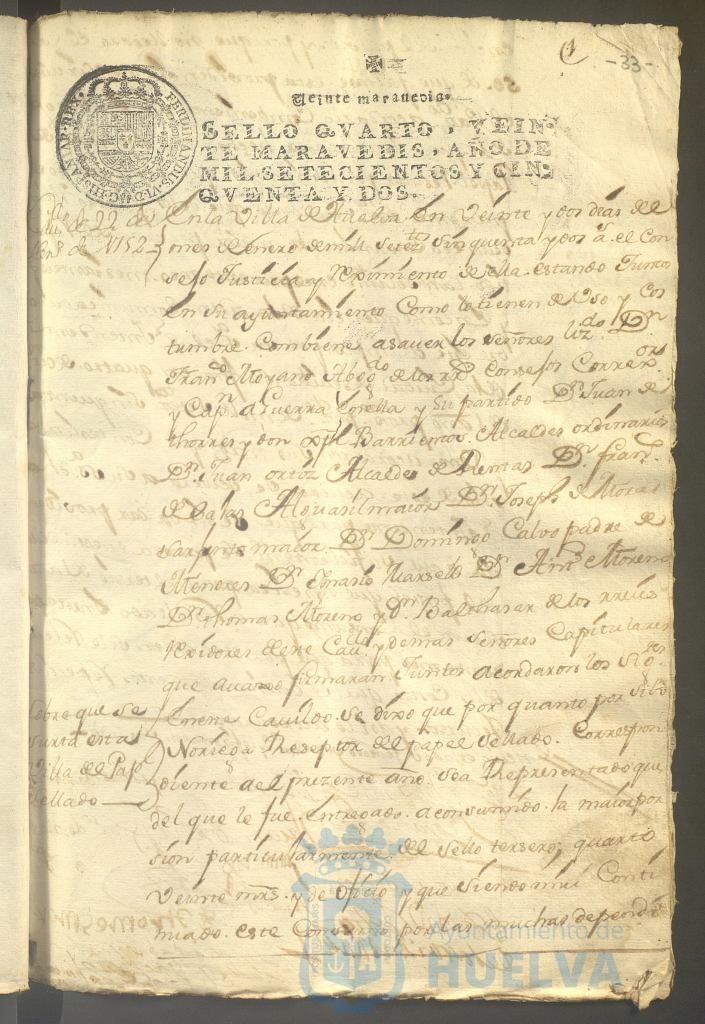 -33-
Veinte maravedis.
SELLO QVARTO, VEIN-
TE MARAVEDIS, AÑO DE
MIL SETECIENTOS Y CIN-
QVENTA Y DOS.
FERDINANDUS VI D G HISPANIAR REX
de 22 de
de 1752
En la Villa de Huelva En Veinte y dos dias del
mes de enero de mill setezos sinquenta y dos as. el Con
sejo Justicia y reximiento de ella estando Juntos
en su ayuntamiento Como lo tienen de Vso y Cos
tumbre Combiene asauer los señores Lizdo. Dn
Franco Moyano Abogdo de los rrs Consejos Correxor
y Capn a Guerra en ella y su partido Dn Juan de
thorres y don xptl Barrientos Alcaldes ordinarios
Dn Juan ortiz Alcalde de Rentas Dn franco
de Salas Alguasil maior Dn Joseph de Moras
Sarjento maior Dn Domingo Calvo padre de
Menores Dn Ignasio Dn Anto Moreno
Dn thomas Moreno y Dn Balthasar de los rreies
Rexidores de ene Cauldo y demas señores Capitulares
que auaxo firmaran Juntos acordaron los Sigtes
Sobre que se
surta esta
Villa de Papl
Sellado
En ene Cauildo se dixo que por quanto por
Noriega Reseptor del papel sellado Correspon
diente a el prezente año sea Representado que
del que le fue entregado a consumido la maior por
sion particularmente del sello tersero, quarto
Veinte mrs. y de oficio y que siendo mui Conti
nuado este Consumo por las muchas depend
Ayuntamiento de
HUELVA